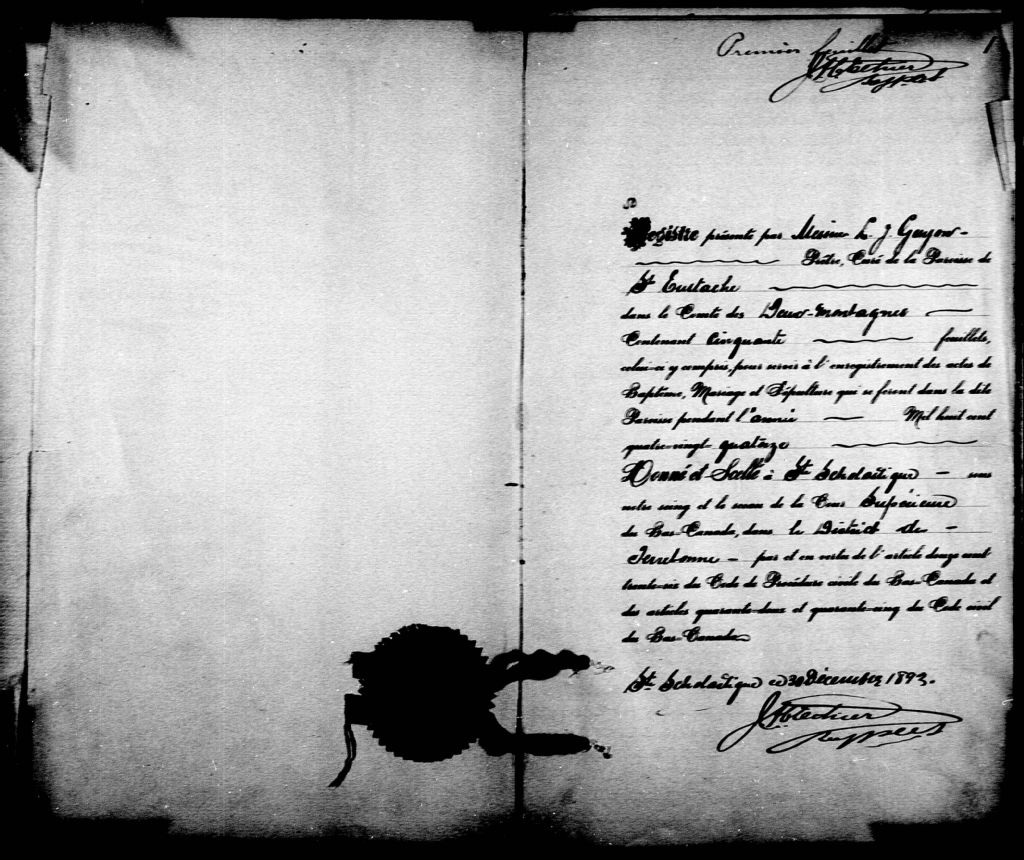 Premier feuillet
1
Registre présenté par Messire L. J. Guyon
Prêtre, Curé de la Paroisse de
St Eustache
dans le Comté des Deux-montagnes
Contenant cinquante feuillets,
celui-ci y compris, pour servir à l'enregistrement des actes de
Baptême, Mariage et Sépulture qui se feront dans la dite
Paroisse pendant l'année Mil huit cent
quatre-vingt quatorze
Donné et Scellé à Ste Scholastique - sous
notre seing et le sceau de la Cour Supérieure
du Bas-Canada, dans le District de -
Terrebonne - par et en vertu de l'article douze cent
trente-six du Code de Procédure civile du Bas-Canada et
des articles quarante-deux et quarante-cinq du Code civil
du Bas-Canada
Ste Scholastique ce 30 Décembre 1893.